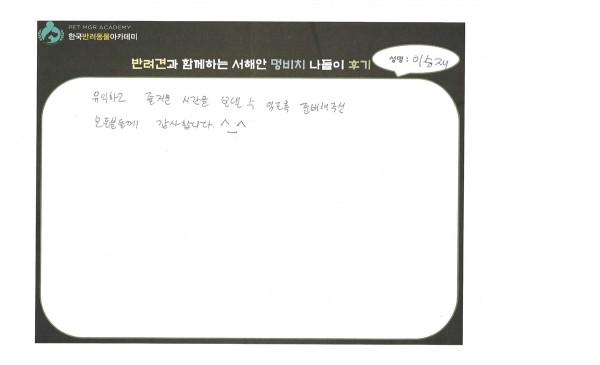 PET MGR ACADEMY
한국반려동물아카데미
반려견과 함께하는 서해안 멍비치 나들이 후기
성명 : 이승재
유익하고 즐거운 시간을 보낼 수 있도록 준비해주신
모든분들께 감사합니다. ^_^